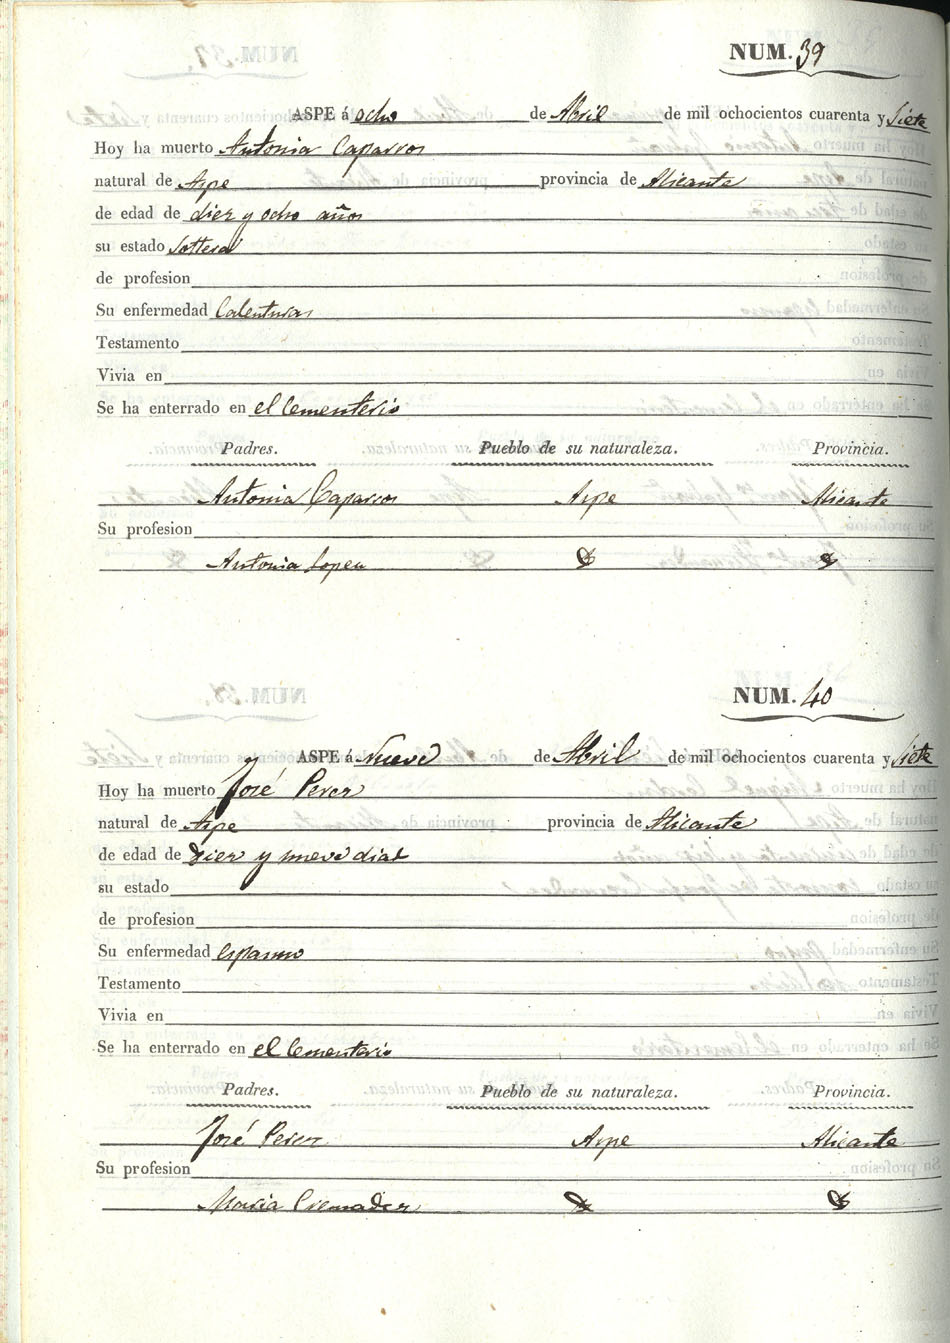 NUM. 39
ASPE á ocho de Abril de mil ochocientos cuarenta y Siete
Hoy ha muerto Antonia Caparros
natural de Aspe provincia de Alicante
de edad de diez y ocho años
su estado Soltera
de profesion
Su enfermedad Calenturas
Testamento
Vivia en
Se ha enterrado en el Cementerio
Padres. Pueblo de su naturaleza. Provincia.
Antonia Caparros Aspe Alicante
Su profesion
Antonia Lopez
NUM. 40
ASPE á Nueve de Abril de mil ochocientos cuarenta y Siete
Hoy ha muerto José Perez
natural de Aspe provincia de Alicante
de edad de Diez y nueve dias
su estado
de profesion
Su enfermedad espasmo
Testamento
Vivia en
Se ha enterrado en el Cementerio
Padres. Pueblo de su naturaleza. Provincia.
José Perez Aspe Alicante
Su profesion
Maria Cremades